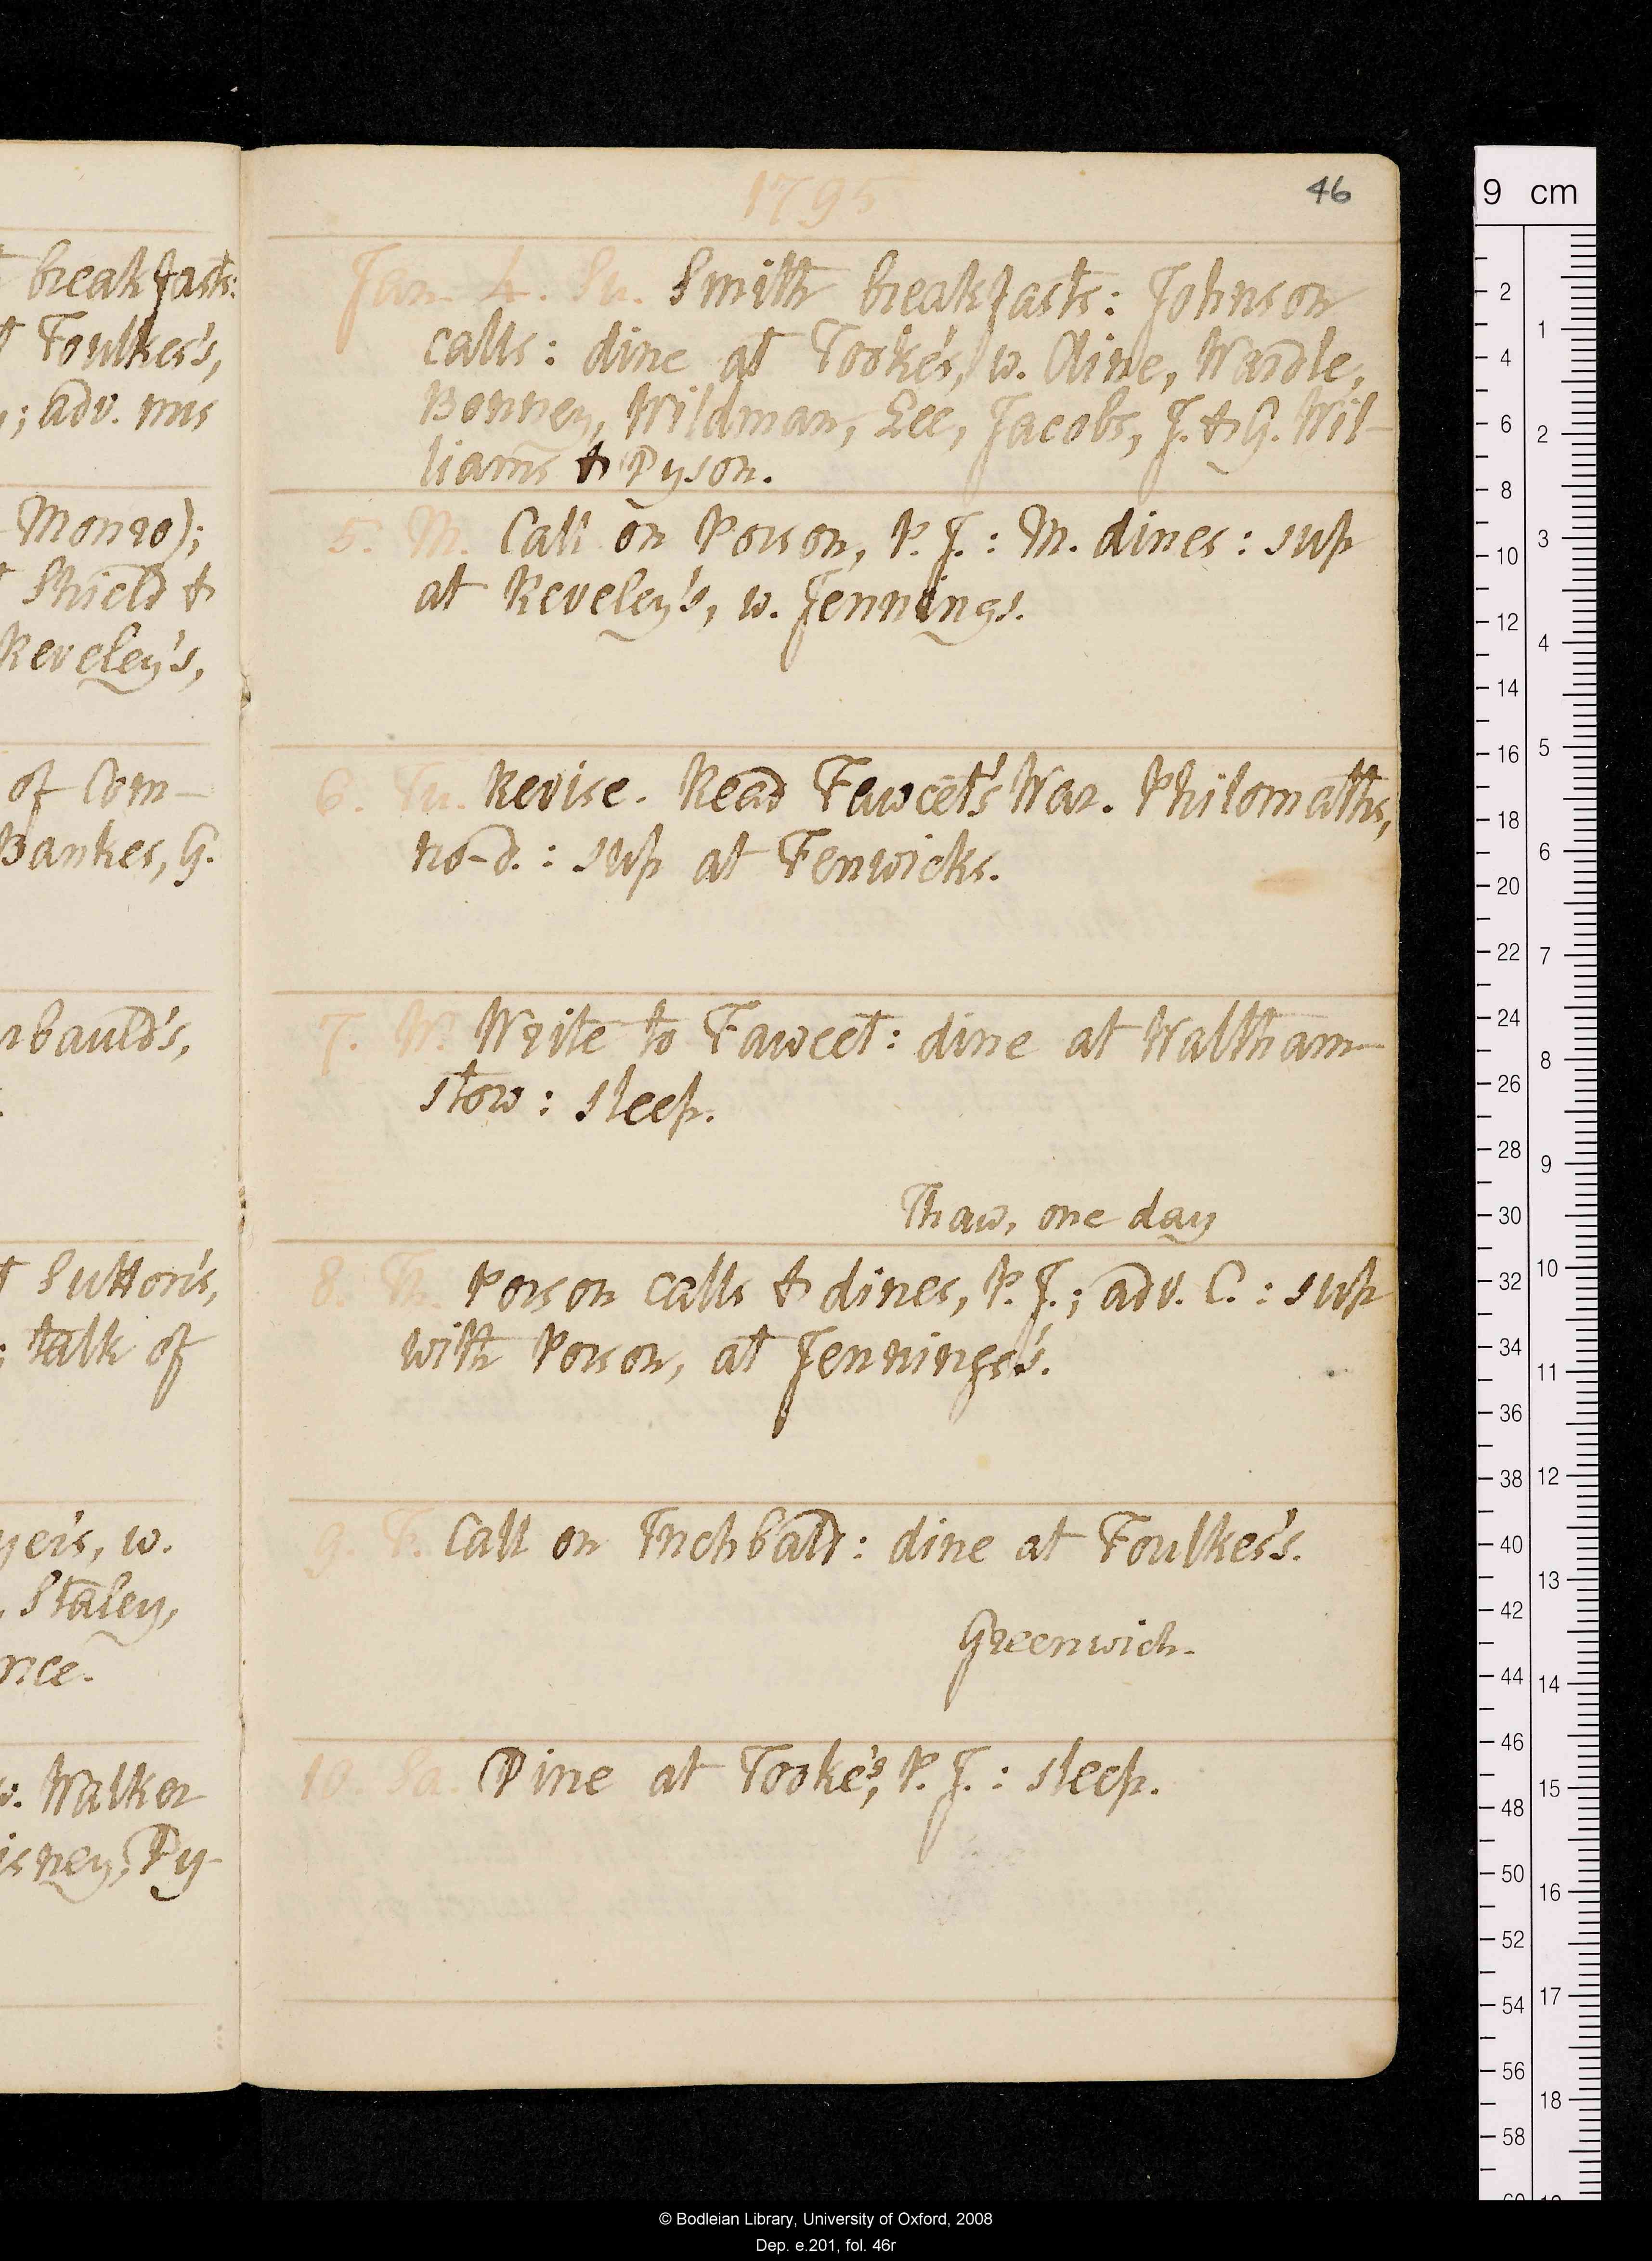 breakfasts:
Foulkes's,
; adv. mis
Monro);
Shield &
Reveley's,
of Com-
Bankes, G.
rbauld's,
Sutton's,
; talk of
yer's, w.
Staley,
nce.
w. Walker
isney, Dy-
1795
46
Jan. 4. Su. Smith breakfasts: Johnson
calls: dine at Tooke's, w. Cline, Wardle,
Bonney, Wildman, Lee, Jacobs, J. & G. Wil-
liams & Dyson.
5. M. Call on Porson, P. J.: M. dines: sup
at Reveley's, w. Jennings.
6. Tu. Revise. Read Fawcet's War. Philomaths,
no-d.: sup at Fenwicks.
7. W. Write to Fawcet: dine at Waltham-
stow: sleep.
Thaw, one day
8. Th. Porson calls & dines, P. J.; adv. C.: sup
with Porson, at Jennings's.
9. F. Call on Inchbald: dine at Foulkes's.
Greenwich.
10. Sa. Dine at Tooke's, P. J.: sleep.
9 cm
2
4
6
8
10
12
14
16
18
20
22
24
26
28
30
32
34
36
38
40
42
44
46
48
50
52
54
56
58
60
1
2
3
4
5
6
7
8
9
10
11
12
13
14
15
16
17
18
© Bodleian Library, University of Oxford, 2008
Dep. e.201, fol. 46r